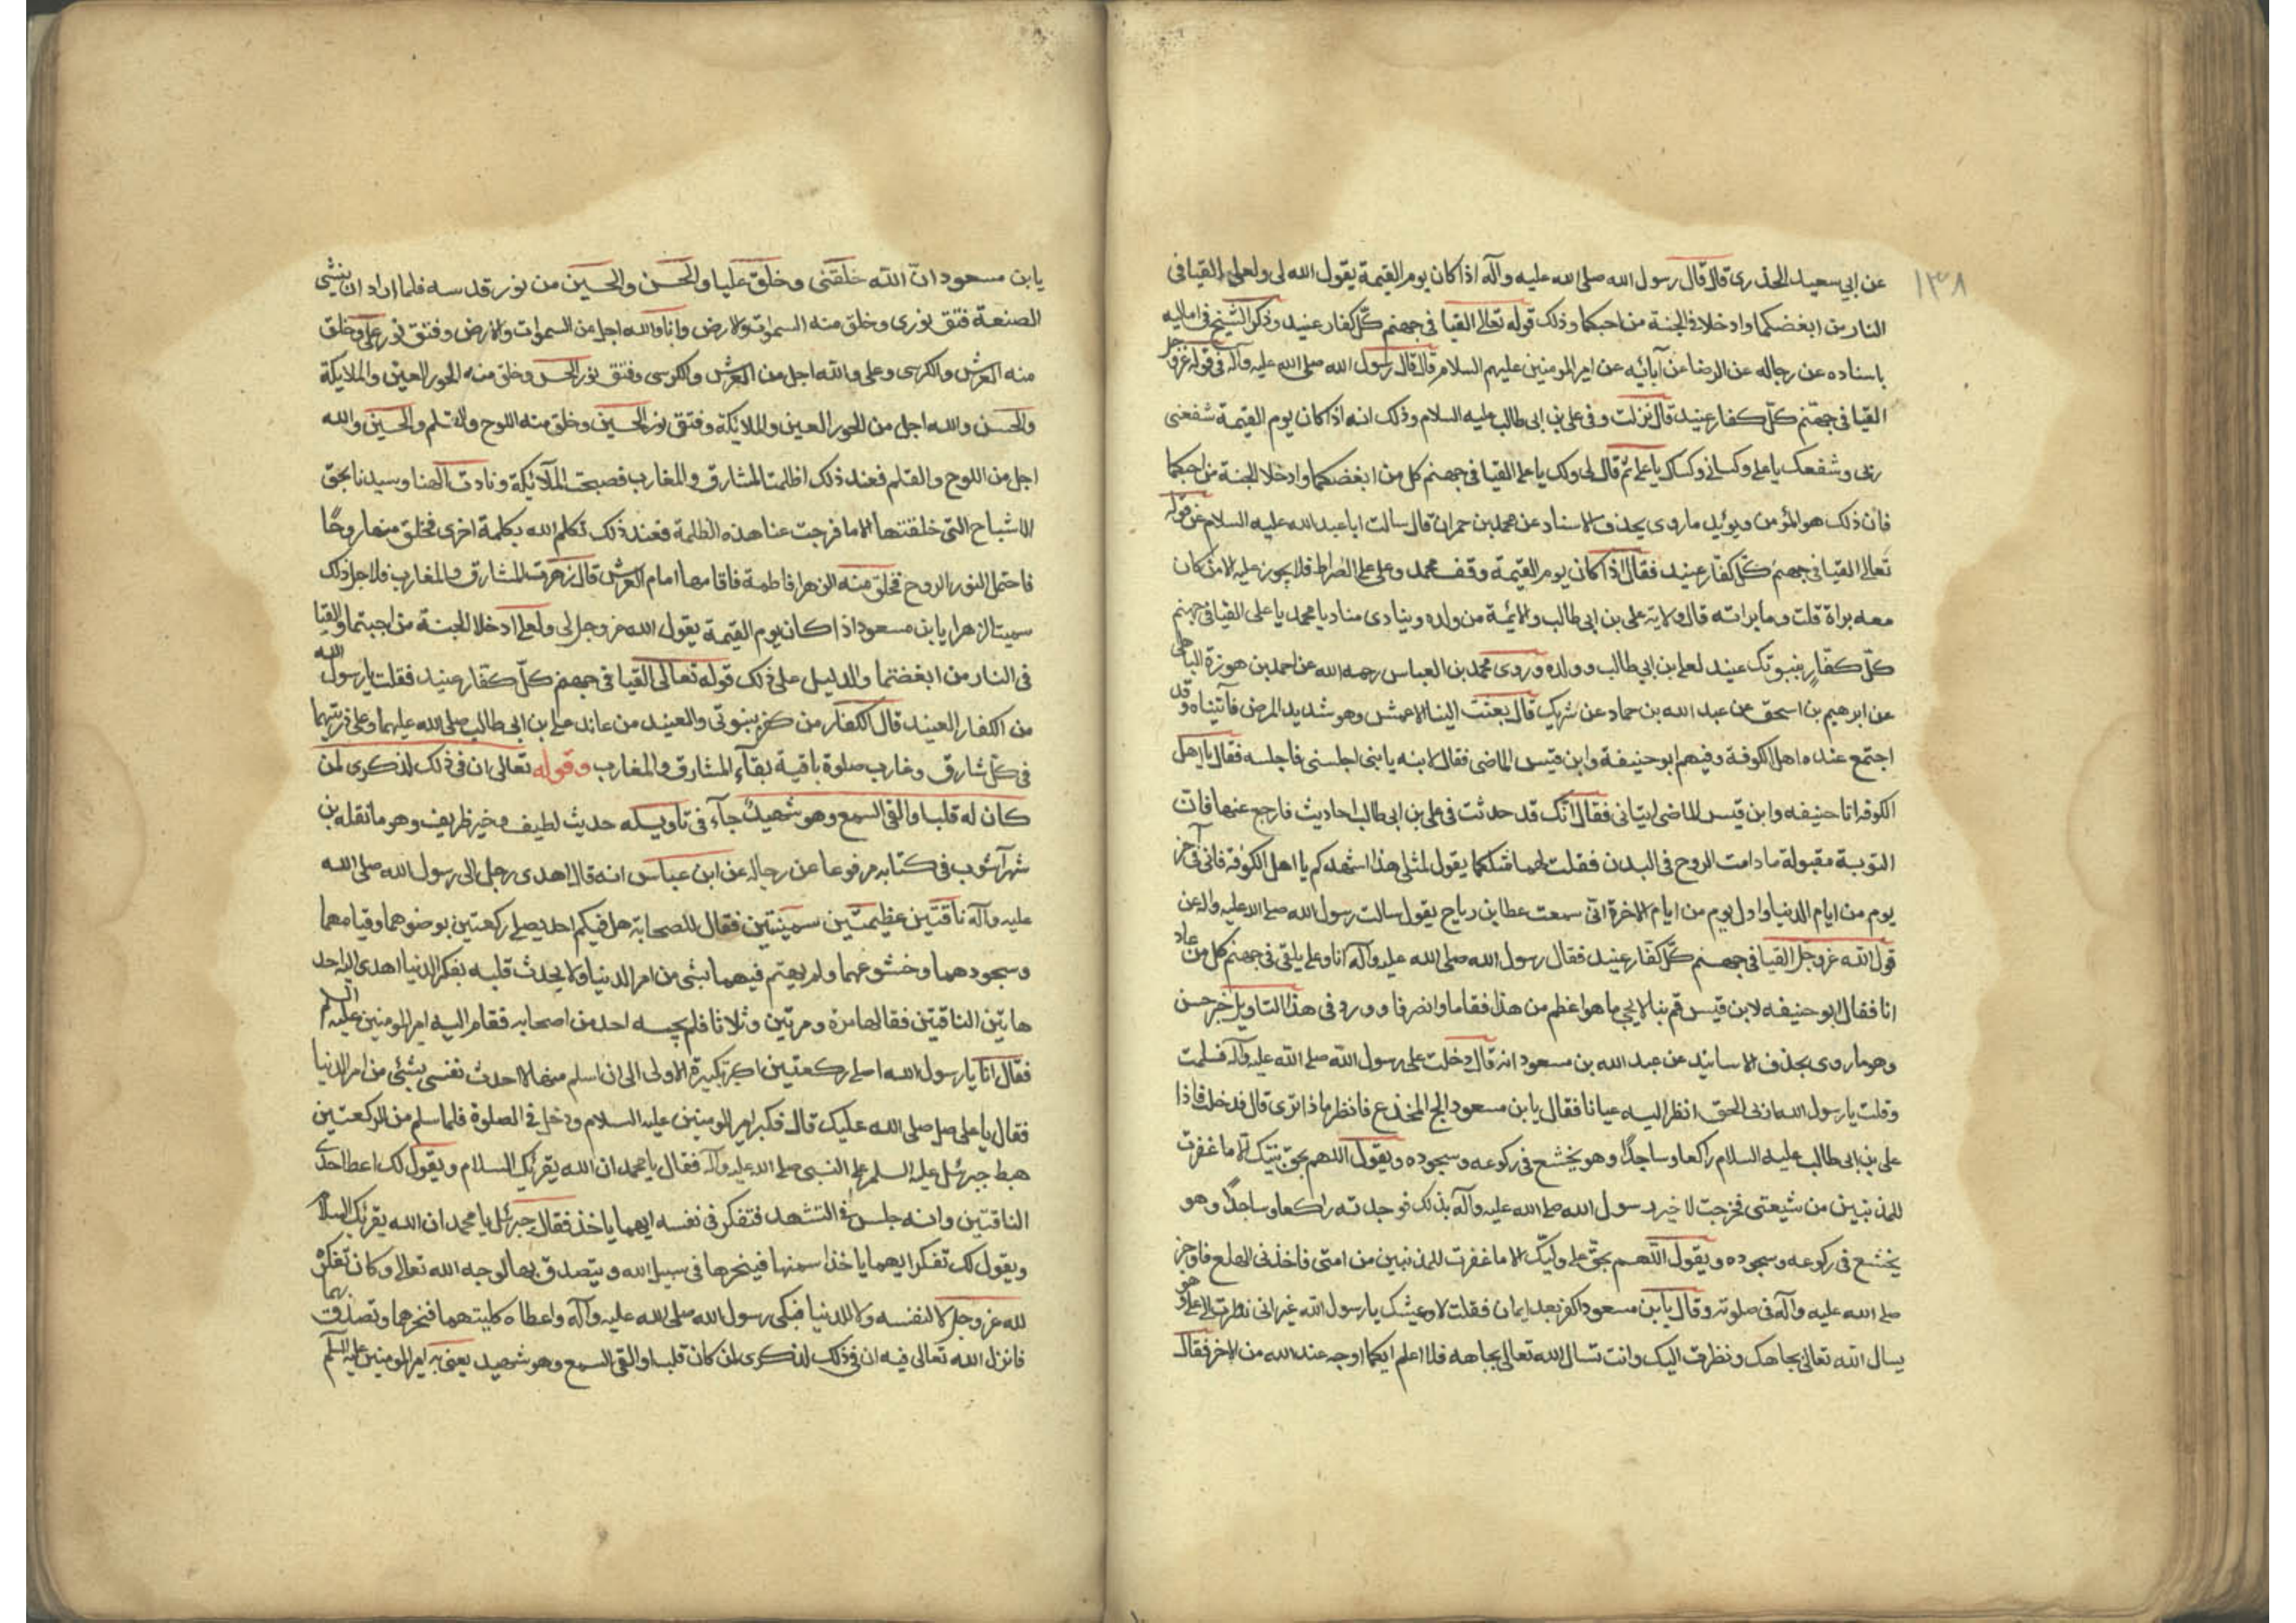 ١٣٨
عن ابي سعيد الخدري قال قال رسول الله صلى الله عليه وآله اذا كان يوم القيمة يقول الله لى ولعلى القيا فى
النار من ابغضكما وادخلا فى الجنة من احبكما وذلك قوله تعالى القيا فى جهنم كل كفار عنيد وذكر الشيخ فى اماليه
باسناده عن رجاله عن الرضا عن آبائه عن امير المومنين عليهم السلام قال قال رسول الله صلى الله عليه وآله فى قوله عز وجل
القيا فى جهنم كل كفار عنيد قال نزلت فى وفى على بن ابى طالب عليه السلام وذلك انه اذا كان يوم القيمة شفعنى
ربى وشفعك يا على وكسانى وكساك يا على ثم قال لى ولك يا على القيا فى جهنم كل من ابغضكما وادخلا الجنة من احبكما
فان ذلك هو المؤمن ويؤيد ما روى بحذف الاسناد عن محمد بن حمران قال سالت ابا عبد الله عليه السلام عن قوله
تعالى القيا فى جهنم كل كفار عنيد فقال اذا كان يوم القيمة وقف محمد وعلى على الصراط فلا يجوز عليه الا من كان
معه براة قلت وما براته قال ولاية على بن ابى طالب والائمة من ولده وينادى مناد يا محمد يا على القيا فى جهنم
كل كفار بنبوتك عنيد لعلى بن ابي طالب وولده وروى محمد بن العباس رحمه الله عن احمد بن هوزة الباهلى
عن ابرهيم بن اسحق عن عبد الله بن حماد عن شريك قال بعثت الينا الاعمش وهو شديد المرض فاتيناه وقد
اجتمع عنده اهل الكوفة وفيهم ابو حنيفة وابن قيس الماضى فقال لابنه يا بنى اجلسنى فاجلسه فقال يا اهل
الكوفة ان ابا حنيفه وابن قيس الماضى اتيانى فقالا انك قد حدثت فى على بن ابى طالب احاديث فارجع عنها فان
التوبة مقبولة ما دامت الروح فى البدن فقلت لهما مثلكما يقول لمثلى هذا اشهدكم يا اهل الكوفة فانى فى آخر
يوم من ايام الدنيا واول يوم من ايام الاخرة انى سمعت عطا بن رباح يقول سالت رسول الله صلى الله عليه واله عن
قول الله عز وجل القيا فى جهنم كل كفار عنيد فقال رسول الله صلى الله عليه وآله انا وعلى يلقى فى جهنم كل من عاد
انا فقال ابو حنيفه لابن قيس قم بنا لا يجى ما هو اعظم من هذا فقاما وانصرفا وورد فى هذا التاويل خبر حسن
وهو ما روى بحذف الاسانيد عن عبد الله بن مسعود انه قال دخلت على رسول الله صلى الله عليه وآله فسلمت
وقلت يا رسول الله ارنى الحق انظر اليه عيانا فقال يابن مسعود لج المخدع فانظر ماذا ترى قال فدخلت فاذا
على بن ابى طالب عليه السلام راكعا وساجدا وهو يخشع فى ركوعه وسجوده ويقول اللهم بحق نبيك الا ما غفرت
للمذنبين من شيعتى فخرجت لاخبر رسول الله صلى الله عليه وآله بذلك فوجدته راكعا وساجدا وهو
يخشع فى ركوعه وسجوده ويقول اللهم بحق على وليك الا ما غفرت للمذنبين من امتى فاخذنى الهلع فاوجز
صلى الله عليه وآله فى صلوته وقال يا بن مسعود اكفر بعد ايمان فقلت لا وعيشك يا رسول الله غير انى نظرت الى على وهو
يسال الله تعالى بجاهك ونظرت اليك وانت تسال الله تعالى بجاهه فلا اعلم ايكما اوجه عند الله من الاخر فقال
يابن مسعود ان الله خلقنى وخلق عليا والحسن والحسين من نور قدسه فلما اراد ان ينشى
الصنعة فتق نورى وخلق منه السموات والارض وانا والله اجل من السموات والارض وفتق نور على وخلق
منه العرش والكرسى وعلى والله اجل من العرش والكرسى وفتق نور الحسن وخلق منه الحور العين والملايكة
والحسن والله اجل من الحور العين والملائكة وفتق نور الحسين وخلق منه اللوح والقلم والحسين والله
اجل من اللوح والقلم فعند ذلك اظلمت المشارق والمغارب فصيحت الملائكة ونادت الهنا وسيدنا بحق
الاشباح التى خلقتها الا ما فرجت عنا هذه الظلمة فعند ذلك تكلم الله بكلمة اخرى فخلق منها روحا
فاحتمل النور الروح فخلق منه الزهرا فاطمة فاقامها امام العرش قال زهرت المشارق والمغارب فلاجل ذلك
سميت الزهرا يا بن مسعود اذا كان يوم القيمة يقول الله عز وجل لى ولعلى ادخلا الجنة من احببتما والقيا
فى النار من ابغضتما والدليل على ذلك قوله تعالى القيا فى جهنم كل كفار عنيد فقلت يا رسول الله
من الكفار العنيد قال الكفار من كفر بنبوتى والعنيد من عاند على بن ابى طالب صلى الله عليهما وعلى ذريتهما
فى كل شارق وغارب صلوة باقية بقآء المشارق والمغارب وقوله تعالى ان فى ذلك لذكرى لمن
كان له قلب او القى السمع وهو شهيد جآء فى تاويله حديث لطيف وخبر ظريف وهو ما نقله بن
شهر آشوب فى كتابه مرفوعا عن رجاله عن ابن عباس انه قال اهدى رجل الى رسول الله صلى الله
عليه وآله ناقتين عظيمتين سمينتين فقال للصحابة هل فيكم احد يصلى ركعتين بوضوهما وقيامهما
وسجودهما وخشوعهما ولم يهتم فيهما بشى من امر الدنيا ولا يحدث قلبه بفكر الدنيا اهدى اليه احد
هاتين الناقتين فقالها مرة ومرتين وثلاثا فلم يجبه احد من اصحابه فقام اليه امير المومنين عليه السلم
فقال انا يا رسول الله اصلى ركعتين اكبر تكبيرة الاولى الى ان اسلم منها لا احدث نفسى بشئ من امر الدنيا
فقال يا على صل صلى الله عليك قال فكبر امير المومنين عليه السلام ودخل فى الصلوة فلما سلم من الركعتين
هبط جبرئل عليه السلم على النبى صلى الله عليه وآله فقال يا محمد ان الله يقرئك السلام ويقول لك اعطه احدى
الناقتين وانه جلس فى التشهد فتفكر فى نفسه ايهما ياخذ فقال جبرئل يا محمد ان الله يقرئك السلام
ويقول لك تفكر ايهما ياخذ اسمنها فينحرها فى سبيل الله ويتصدق بها لوجه الله تعالى وكان تفكره
لله عز وجل لا لنفسه ولا للدنيا فبكى رسول الله صلى الله عليه وآله واعطاه كليتهما فنحرهما وتصدق بهما
فانزل الله تعالى فيه ان فى ذلك لذكرى لمن كان له قلب او القى السمع وهو شهيد يعنى به امير المومنين عليه السلم